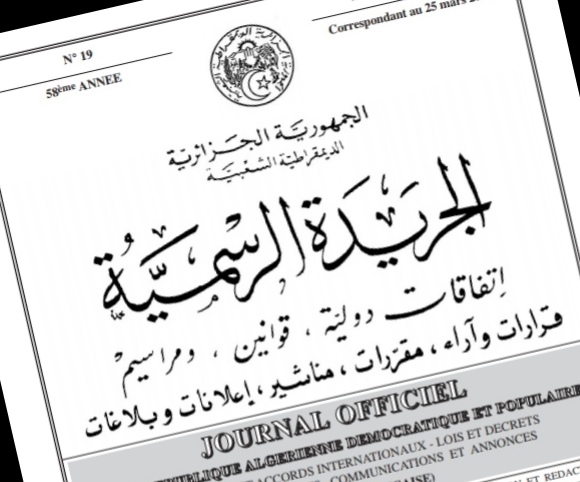 N° 19
58ème ANNEE
Correspondant au 25 mars
الجمهورية الجزائرية
الديمقراطية الشعبية
الجريدة الرسمية
إتفاقات دولية ، قوانين ، ومراسيم
قرارات وآراء ، مقررات ، مناشير ، إعلانات وبلاغات
JOURNAL OFFICIEL
REPUBLIQUE ALGERIENNE DEMOCRATIQUE ET POPULAIRE
ACCORDS INTERNATIONAUX - LOIS ET DECRETS
COMMUNICATIONS ET ANNONCES